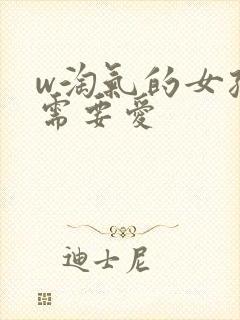 w淘氣的女孩
需要愛
迪士尼